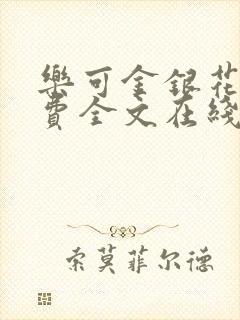 樂可金銀花
費全文在綫
索莫菲尔德